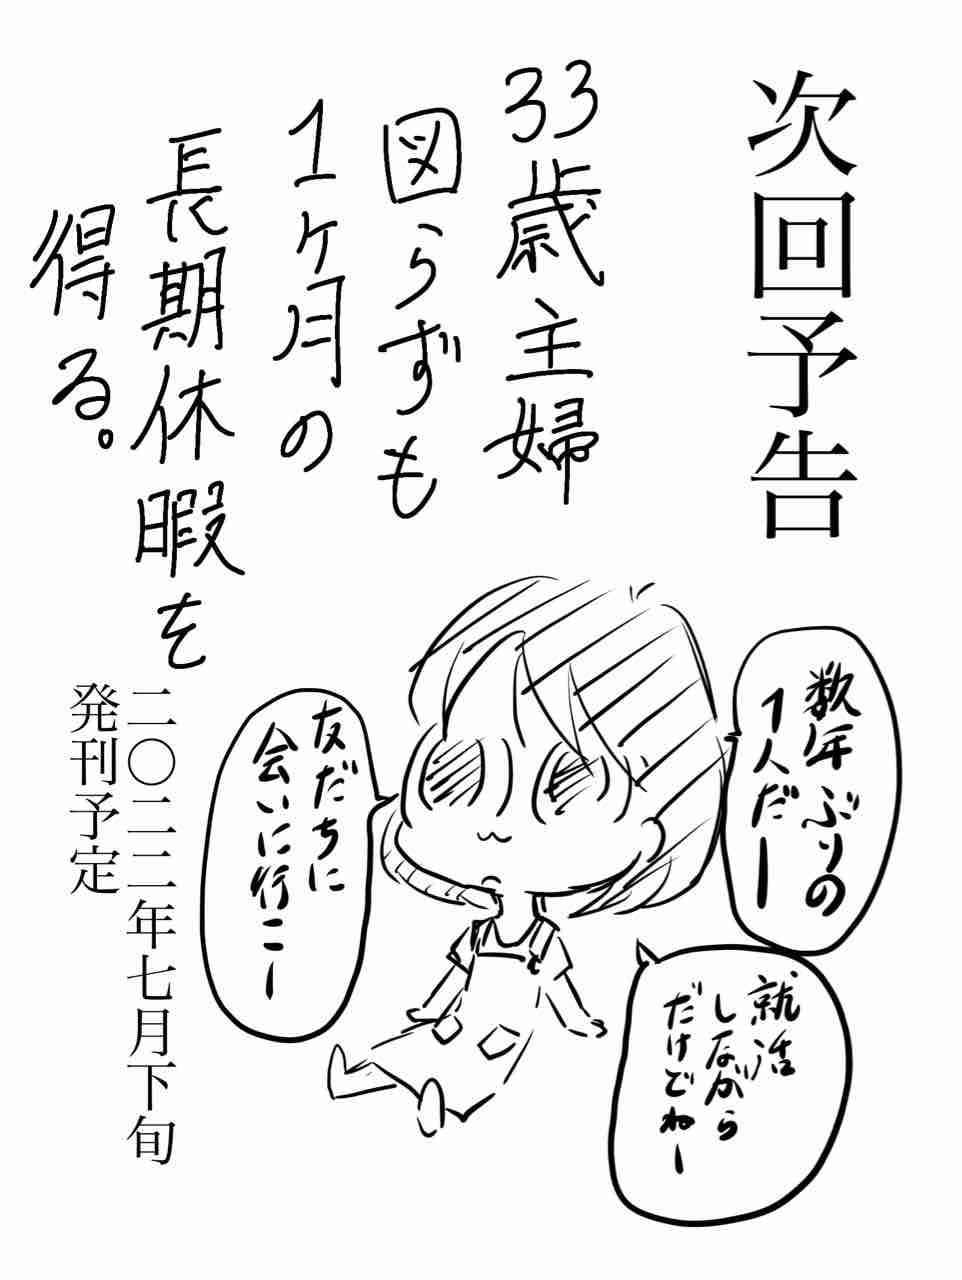 次回予告
33歳主婦
図らずも
1ヶ月の
長期休暇を
得る。
数年ぶりの
1人だー
就活
しながら
だけどねー
友だちに
会いに行こー
二〇二二年七月下旬
発刊予定